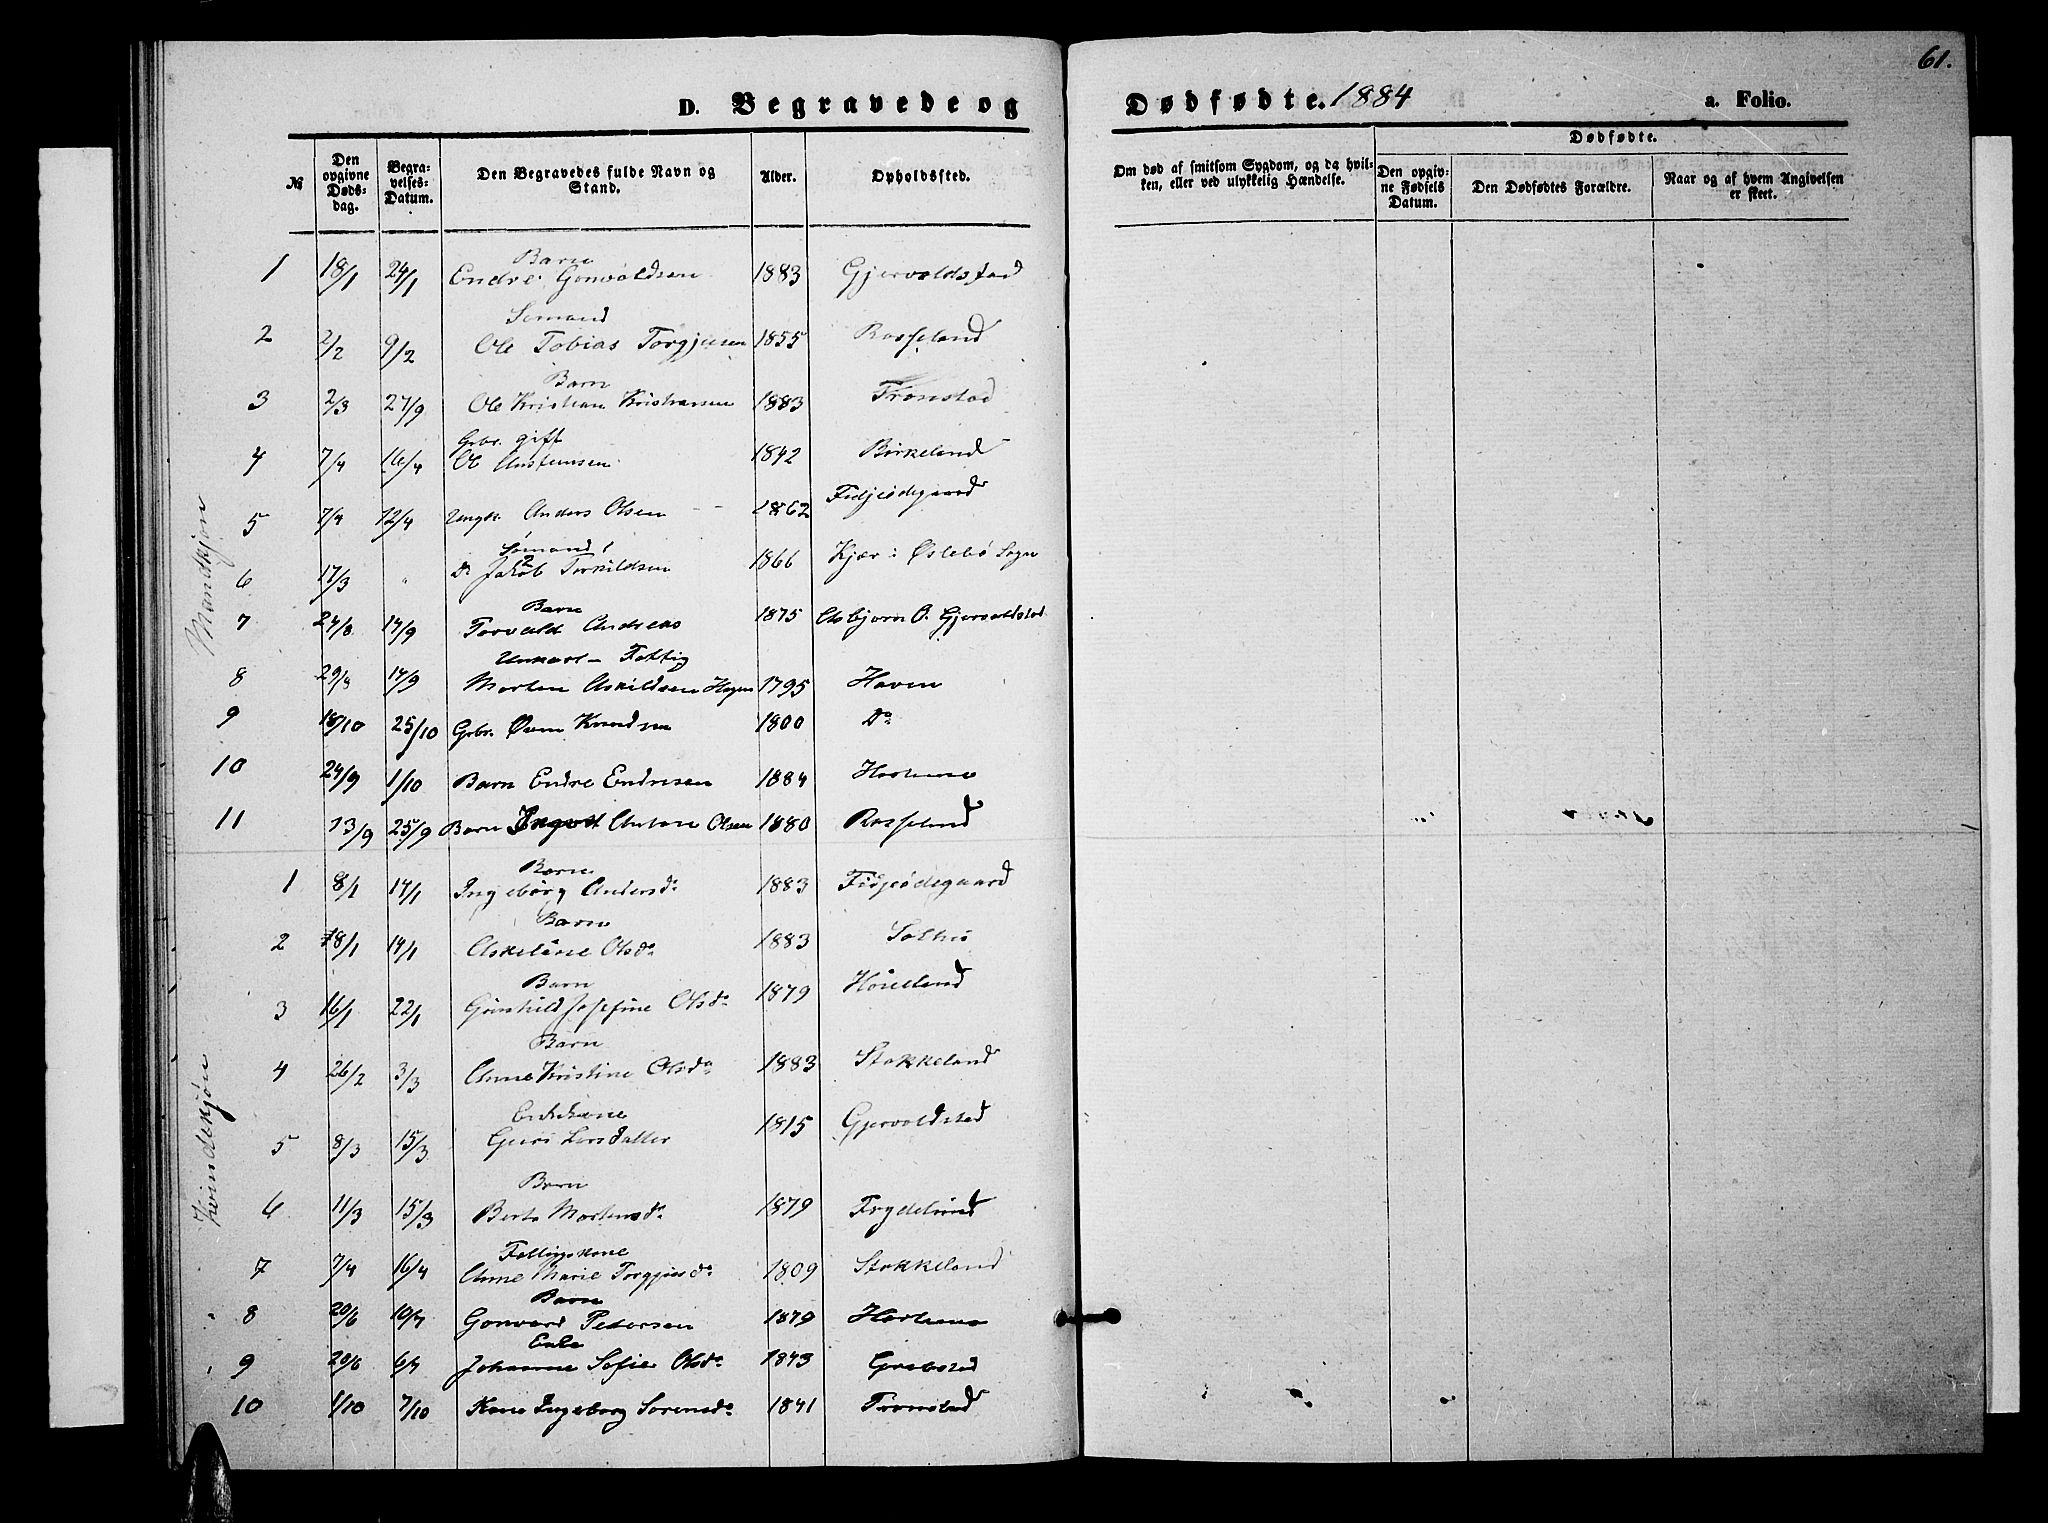 61.
D. Begravede og Dødfødte. 1884 a. Folio.
№ Den opgivne Dødsdag. Begravelses-Datum. Den Begravedes fulde Navn og Stand. Alder. Opholdssted. Om død af smitsom Sygdom, og da hvilken, eller ved ulykkelig Hændelse. Dødfødte. Den opgivne Fødsels Datum. Den Dødfødtes Forældre. Naar og af hvem Angivelsen er skeet.
Mandkjøn
Barn
1 18/1 24/1 Endre Gonvaldsen 1883 Gjervoldstad
Sømand
2 2/2 9/2 Ole Tobias Torgjusen 1855 Rosseland
Barn
3 2/3 27/9 Ole Kristian Kristiansen 1883 Tronstad
Gbr. gift
4 7/4 16/4 Ole 1842 Birkeland
5 7/4 12/4 Ungk. Anders Olsen 1862 Fidjeødegaard
Sømand
6 17/3 " Do Jakob Torkildsen 1866 Kjær i Øslebø Sogn
Barn
7 24/8 14/9 Torvald Andreas 1875 Asbjørn O. Gjervoldstad
Unkarl - Fattig
8 29/8 14/9 Morten Askildsen Hagen 1795 Haven
9 18/10 25/10 Gbr. Knudsen 1800 Do
10 24/9 1/10 Barn Endre Endresen 1884
11 13/9 25/9 Barn Ingvot Anton Olsen 1880 Rosseland
Kvindekjøn
Barn
1 8/1 14/1 Ingeborg Andersdr 1883 Fidjeødegaard
Barn
2 8/1 14/1 Olsdr 1883
Barn
3 16/1 22/1 Gunhild Josefine Olsdr 1879
Barn
4 26/2 3/3 Anne Kristine Olsdr 1883 Stokkeland
Enkekone
5 8/3 15/3 Guri Larsdatter 1815 Gjervoldstad
Barn
6 11/3 15/3 Berte Mortensdr 1879 Frydelund
Fattigkone
7 7/4 16/4 Anne Marie Torgjusdr 1809 Stokkeland
Barn
8 20/6 10/7 Gonvard Petersen 1879
Enke
9 29/6 6/7 Johanne Sofie Olsdr 1843 Grebstad
10 1/10 7/10 Kone Ingeborg Sørensdr 1841 Tronstad